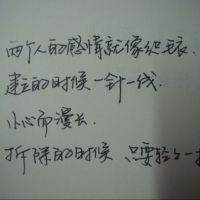 两个人的感情就像织毛衣.
建立的时候一针一线.
小心而漫长.
拆除的时候 只要轻轻一